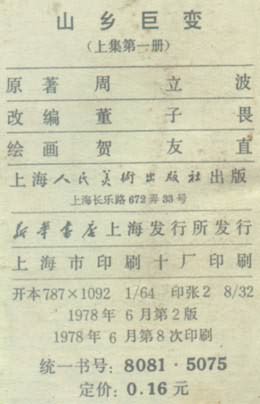 山乡巨变
(上集第一册)
原著 周立波
改编 董子畏
绘画 贺友直
上海人民美术出版社出版
上海长乐路672弄33号
新华书店上海发行所发行
上海市印刷十厂印刷
开本787×1092 1/64 印张2 8/32
1978年6月第2版
1978年6月第8次印刷
统一书号:8081·5075
定价:0.16元